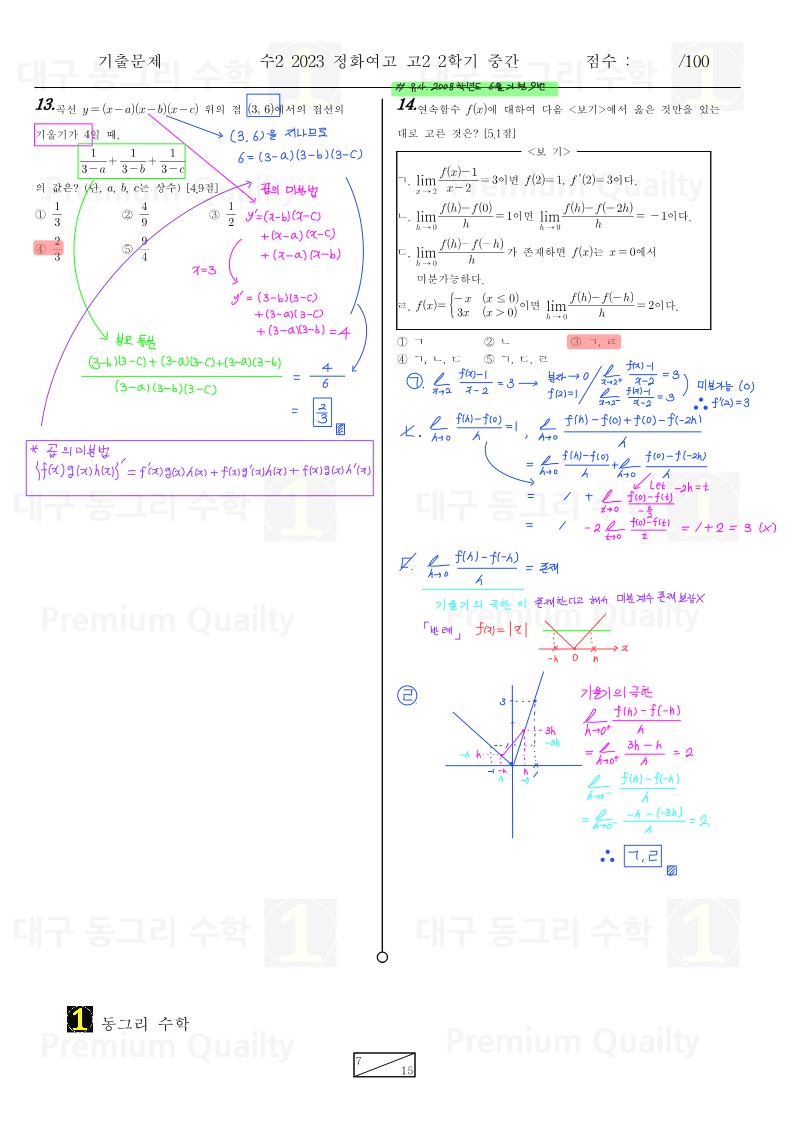 기출문제 수2 2023 정화여고 고2 2학기 중간 점수 : /100
13. 곡선 y=(x−a)(x−b)(x−c) 위의 점 (3, 6)에서의 접선의
기울기가 4일 때,
1/(3−a) + 1/(3−b) + 1/(3−c)
의 값은? (단, a, b, c는 상수) [4.9점]
① 1/3 ② 4/9 ③ 1/2
④ 2/3 ⑤ 9/4
(3, 6)을 지나므로
6=(3-a)(3-b)(3-c)
곱의 미분법
y'=(x-b)(x-c)
+(x-a)(x-c)
+(x-a)(x-b)
x=3
y'=(3-b)(3-c)
+(3-a)(3-c)
+(3-a)(3-b)=4
분모 통분
(3-b)(3-c)+(3-a)(3-c)+(3-a)(3-b) / (3-a)(3-b)(3-c) = 4/6
= 2/3
* 곱의 미분법
{f(x)g(x)h(x)}' = f'(x)g(x)h(x)+f(x)g'(x)h(x)+f(x)g(x)h'(x)
# 유사. 2008학년도 6월 가형 9번
14. 연속함수 f(x)에 대하여 다음 <보기>에서 옳은 것만을 있는
대로 고른 것은? [5.1점]
<보 기>
ㄱ. lim x→2 (f(x)−1)/(x−2) = 3이면 f(2)=1, f′(2)=3이다.
ㄴ. lim h→0 (f(h)−f(0))/h = 1이면 lim h→0 (f(h)−f(−2h))/h = −1이다.
ㄷ. lim h→0 (f(h)−f(−h))/h 가 존재하면 f(x)는 x=0에서
미분가능하다.
ㄹ. f(x)={−x (x≤0) 3x (x>0)이면 lim h→0 (f(h)−f(−h))/h = 2이다.
① ㄱ ② ㄴ ③ ㄱ, ㄹ
④ ㄱ, ㄴ, ㄷ ⑤ ㄱ, ㄷ, ㄹ
㉠. lim x→2 (f(x)-1)/(x-2) = 3 → 분자→0 f(2)=1 / lim x→2+ (f(x)-1)/(x-2) = 3 lim x→2- (f(x)-1)/(x-2) = 3 ) 미분가능 (O)
∴ f'(2)=3
ㄴ. lim h→0 (f(h)-f(0))/h = 1, lim h→0 (f(h)-f(0)+f(0)-f(-2h))/h
= lim h→0 (f(h)-f(0))/h + lim h→0 (f(0)-f(-2h))/h
Let -2h=t
= 1 + lim t→0 (f(0)-f(t))/(-t/2)
= 1 -2 lim t→0 (f(0)-f(t))/t = 1+2 = 3 (X)
ㄷ. lim h→0 (f(h)-f(-h))/h = 존재
기울기의 극한이 존재한다고 해서 미분계수 존재 보장X
「반례」 f(x)=|x|
-h 0 h x
㉣
3
3h
-3h
-h h
-1 -h h 1
h -h
기울기의 극한
lim h→0+ (f(h)-f(-h))/h
= lim h→0+ (3h-h)/h = 2
lim h→0- (f(h)-f(-h))/h
= lim h→0- (-h-(-3h))/h = 2
∴ ㄱ, ㄹ
대구 동그리 수학 1
Premium Quailty
1 동그리 수학
7 15